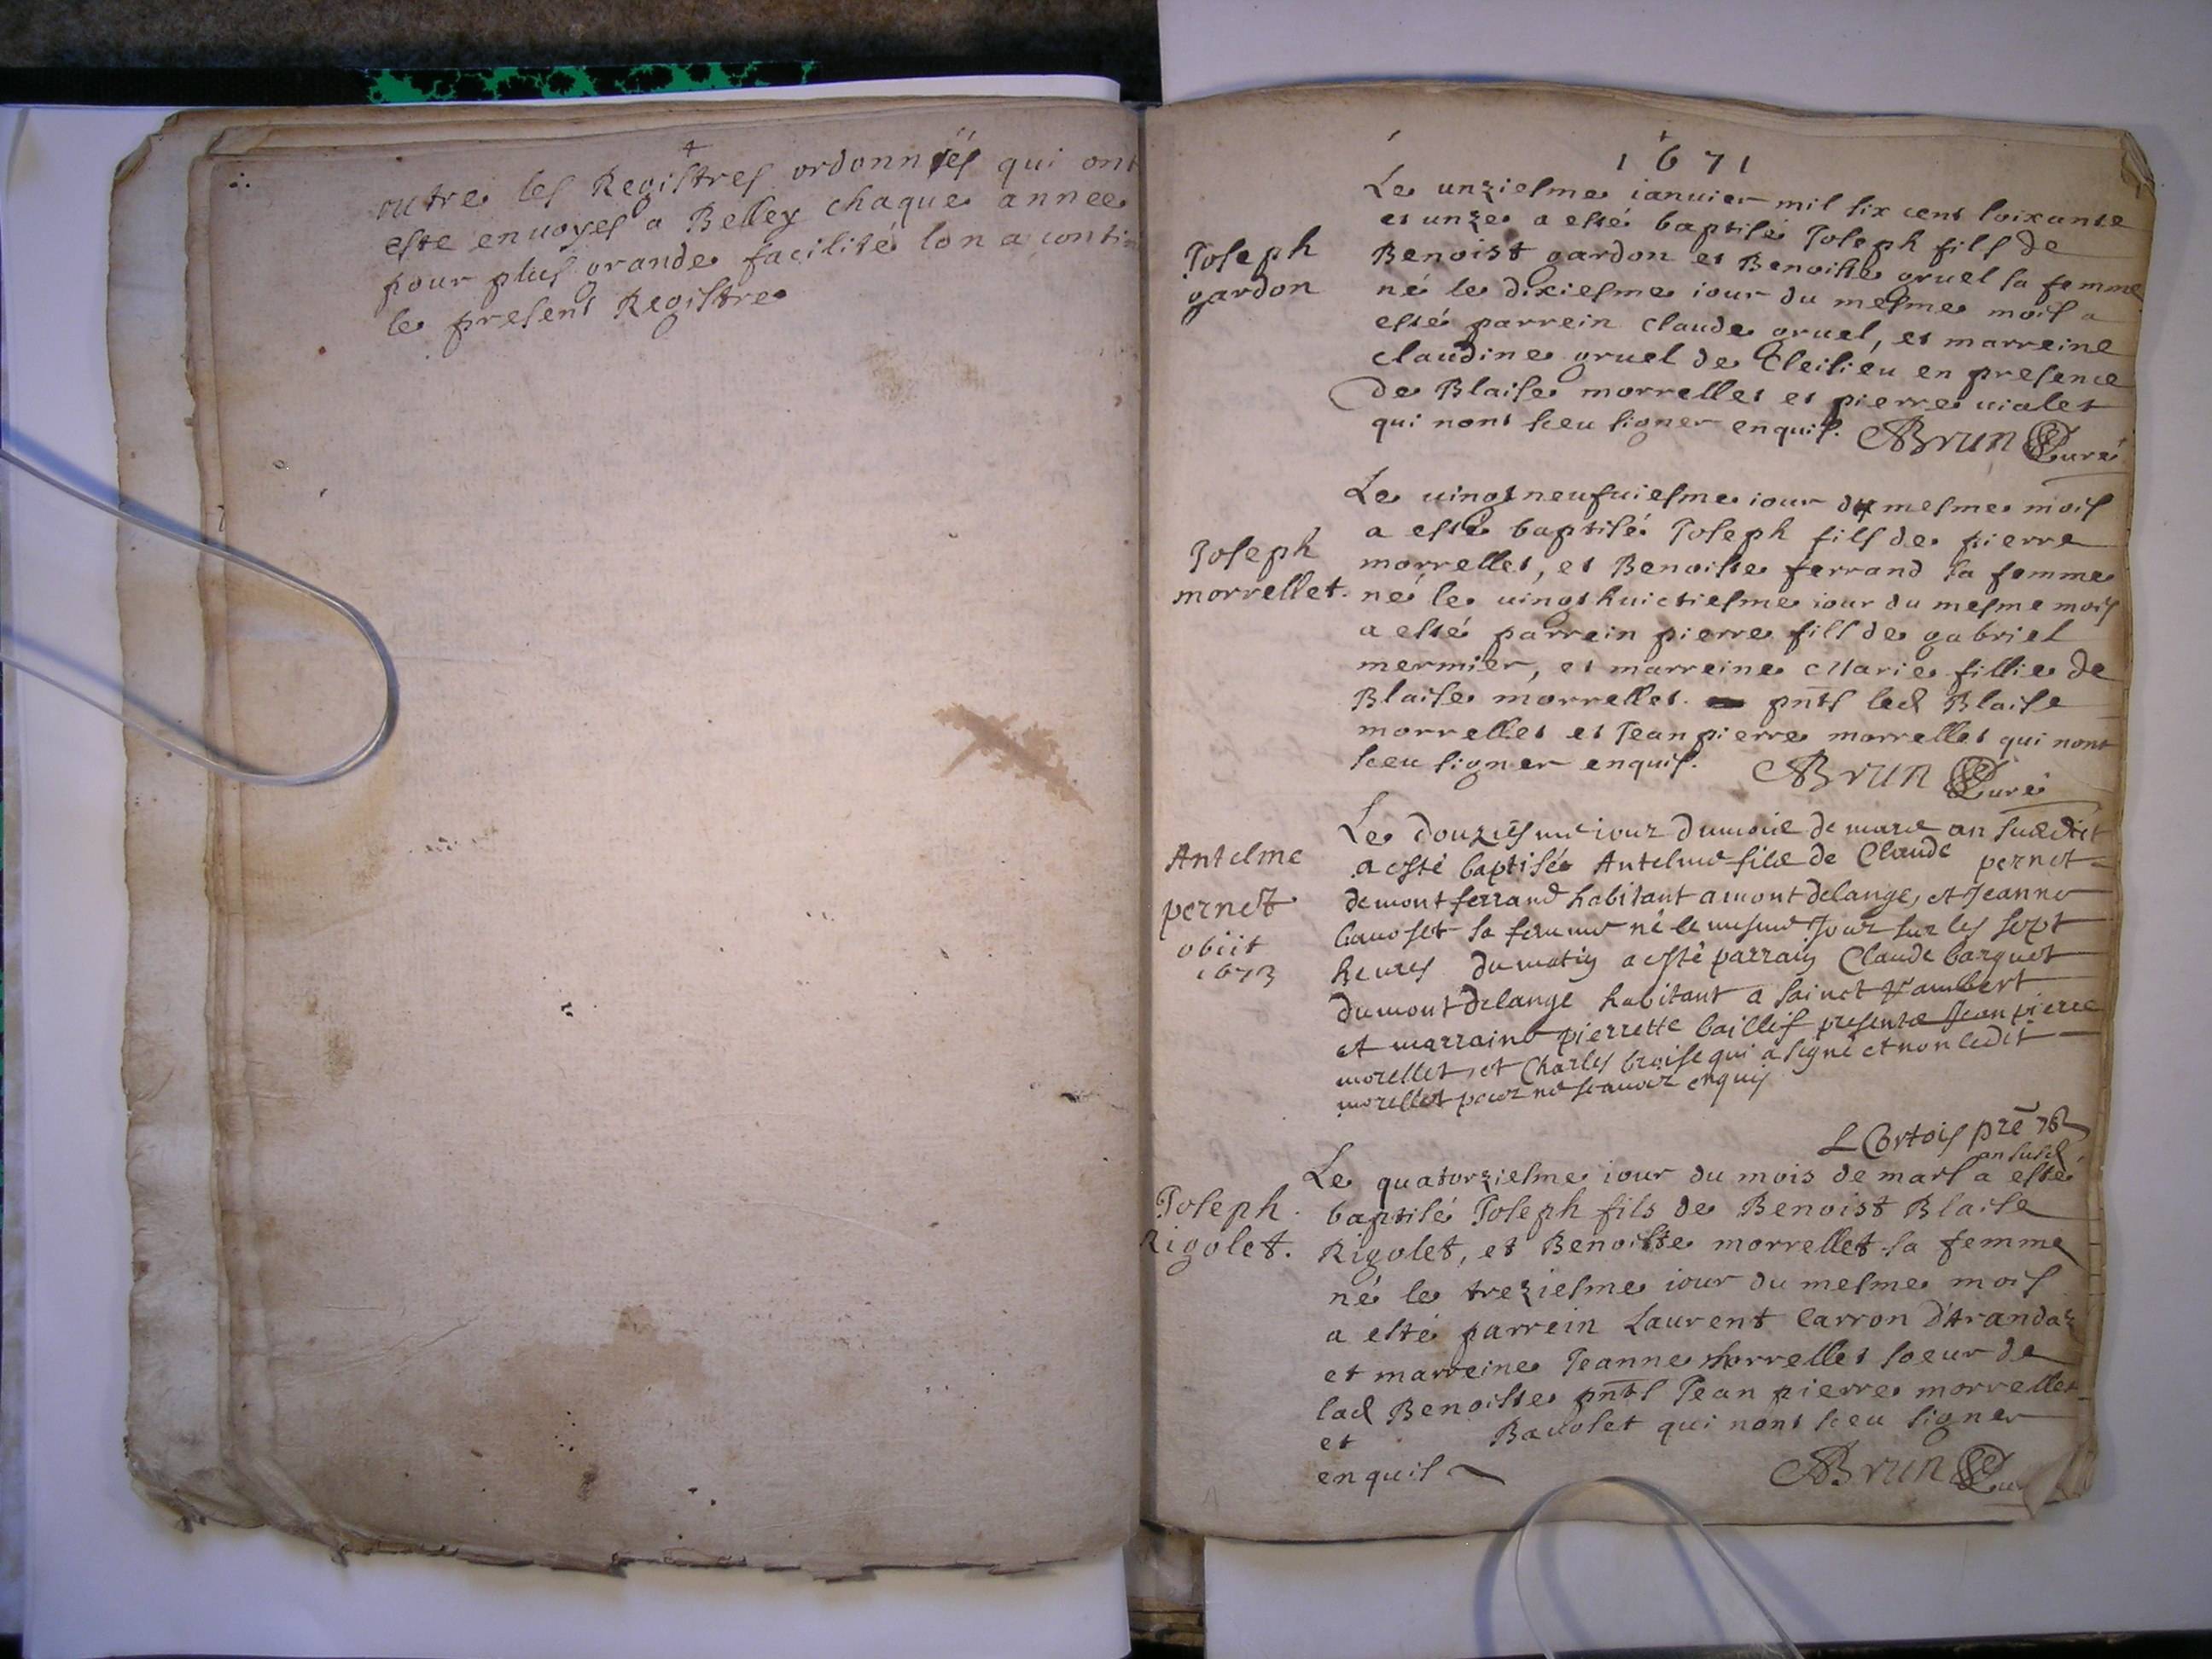 outre les Registres ordonnés qui ont
este enuoyes a Belley chaque annee
pour plus grande facilité lon a contin
le present Registre
1671
Le unziesme ianuier mil six cent soixante
et unze a esté baptisé Joseph fils de
Joseph
gardon
Benoist gardon et Benoiste gruel sa femme
né le dixiesme iour du mesme mois a
esté parrein claude gruel, et marreine
claudine gruel de Cleisieu en presence
de Blaise morrellet et pierre uialet
qui nont sceu signer enquis. Brun Curé
Le uingtneufuiesme iour du mesme mois
a esté baptisé Joseph fils de pierre
Joseph
morrellet.
morrellet, et Benoiste ferrand sa femme
né le uingthuictiesme iour du mesme mois
a esté parrein pierre fils de gabriel
mermier, et marreine Marie fillie de
Blaise morrellet. pnts led Blaise
morrellet et Jean pierre morrellet qui nont
sceu signer enquis. Brun Curé
Le douziesme iour du mois de mars an susdict
Antelme
pernet
obiit
1673
a esté baptisé Antelme fils de Claude pernet
de montferrand habitant a mont delange, et Jeanne
bauoset sa femme né le mesme Jour sur les sept
heures du matin a esté parrain Claude barquet
du mont delange habitant a sainct Rambert
et marraine pierrette baillif presents Jean pierre
morellet, et Charles broise qui a signé et non ledit
morellet pour ne scauoir enquis
L Cortois pre
an susd
Le quatorziesme iour du mois de mars a esté
Joseph
Rigolet.
baptisé Joseph fils de Benoist Blaise
Rigolet, et Benoiste morrellet sa femme
né le treziesme iour du mesme mois
a esté parrein Laurent Carron d'Arandaz
et marreine Jeanne morrellet soeur de
lad Benoiste pnts Jean pierre morrellet
et Bauolet qui nont sceu signer
enquis Brun Cur